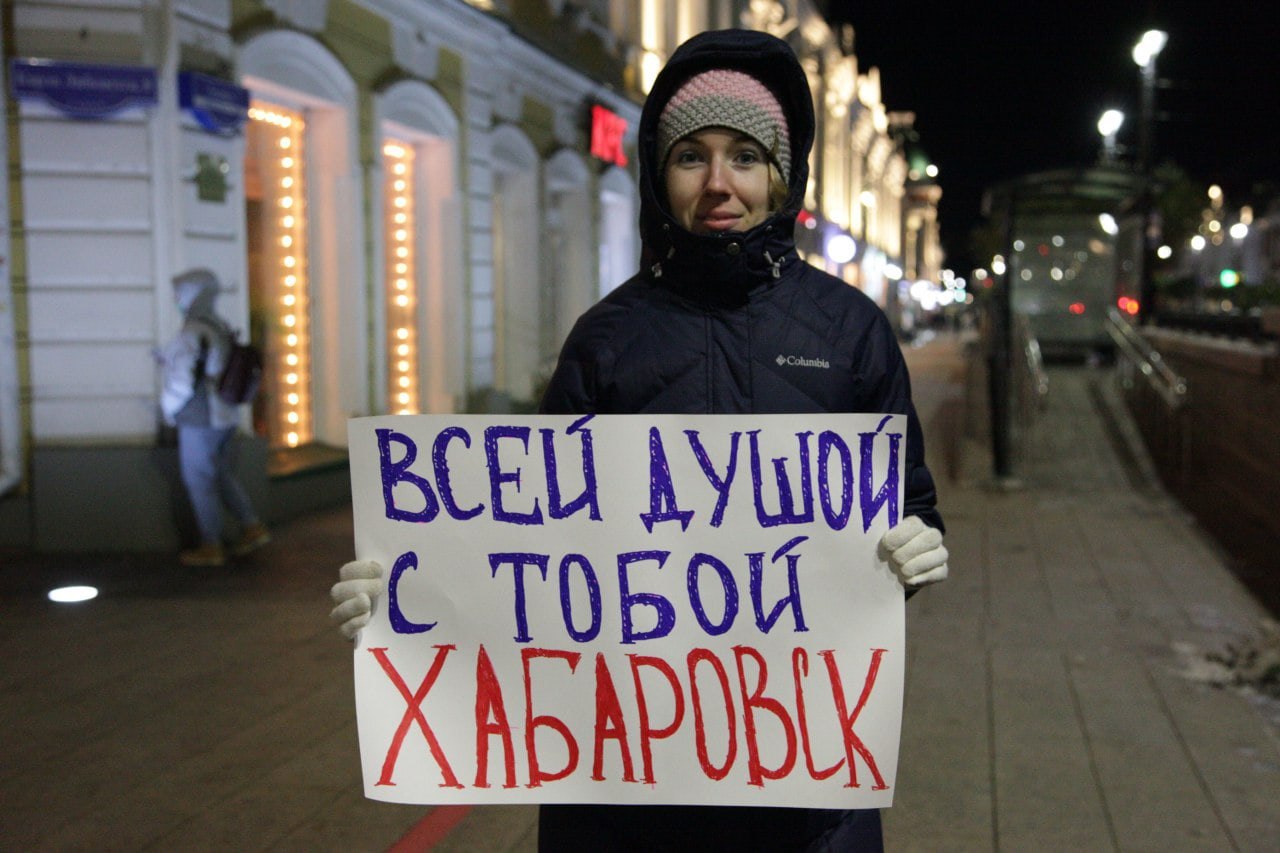 KFC
Columbia
ВСЕЙ ДУШОЙ
С ТОБОЙ
ХАБАРОВСК